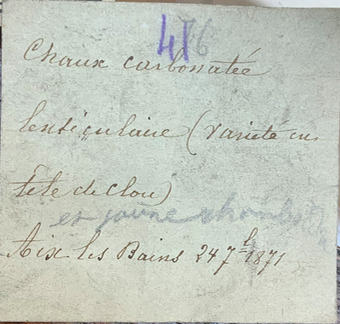 486
Chaux carbonatée
lenticulaire (variété en
tête de clou)
et jaune
Aix les Bains 24 7b 1871